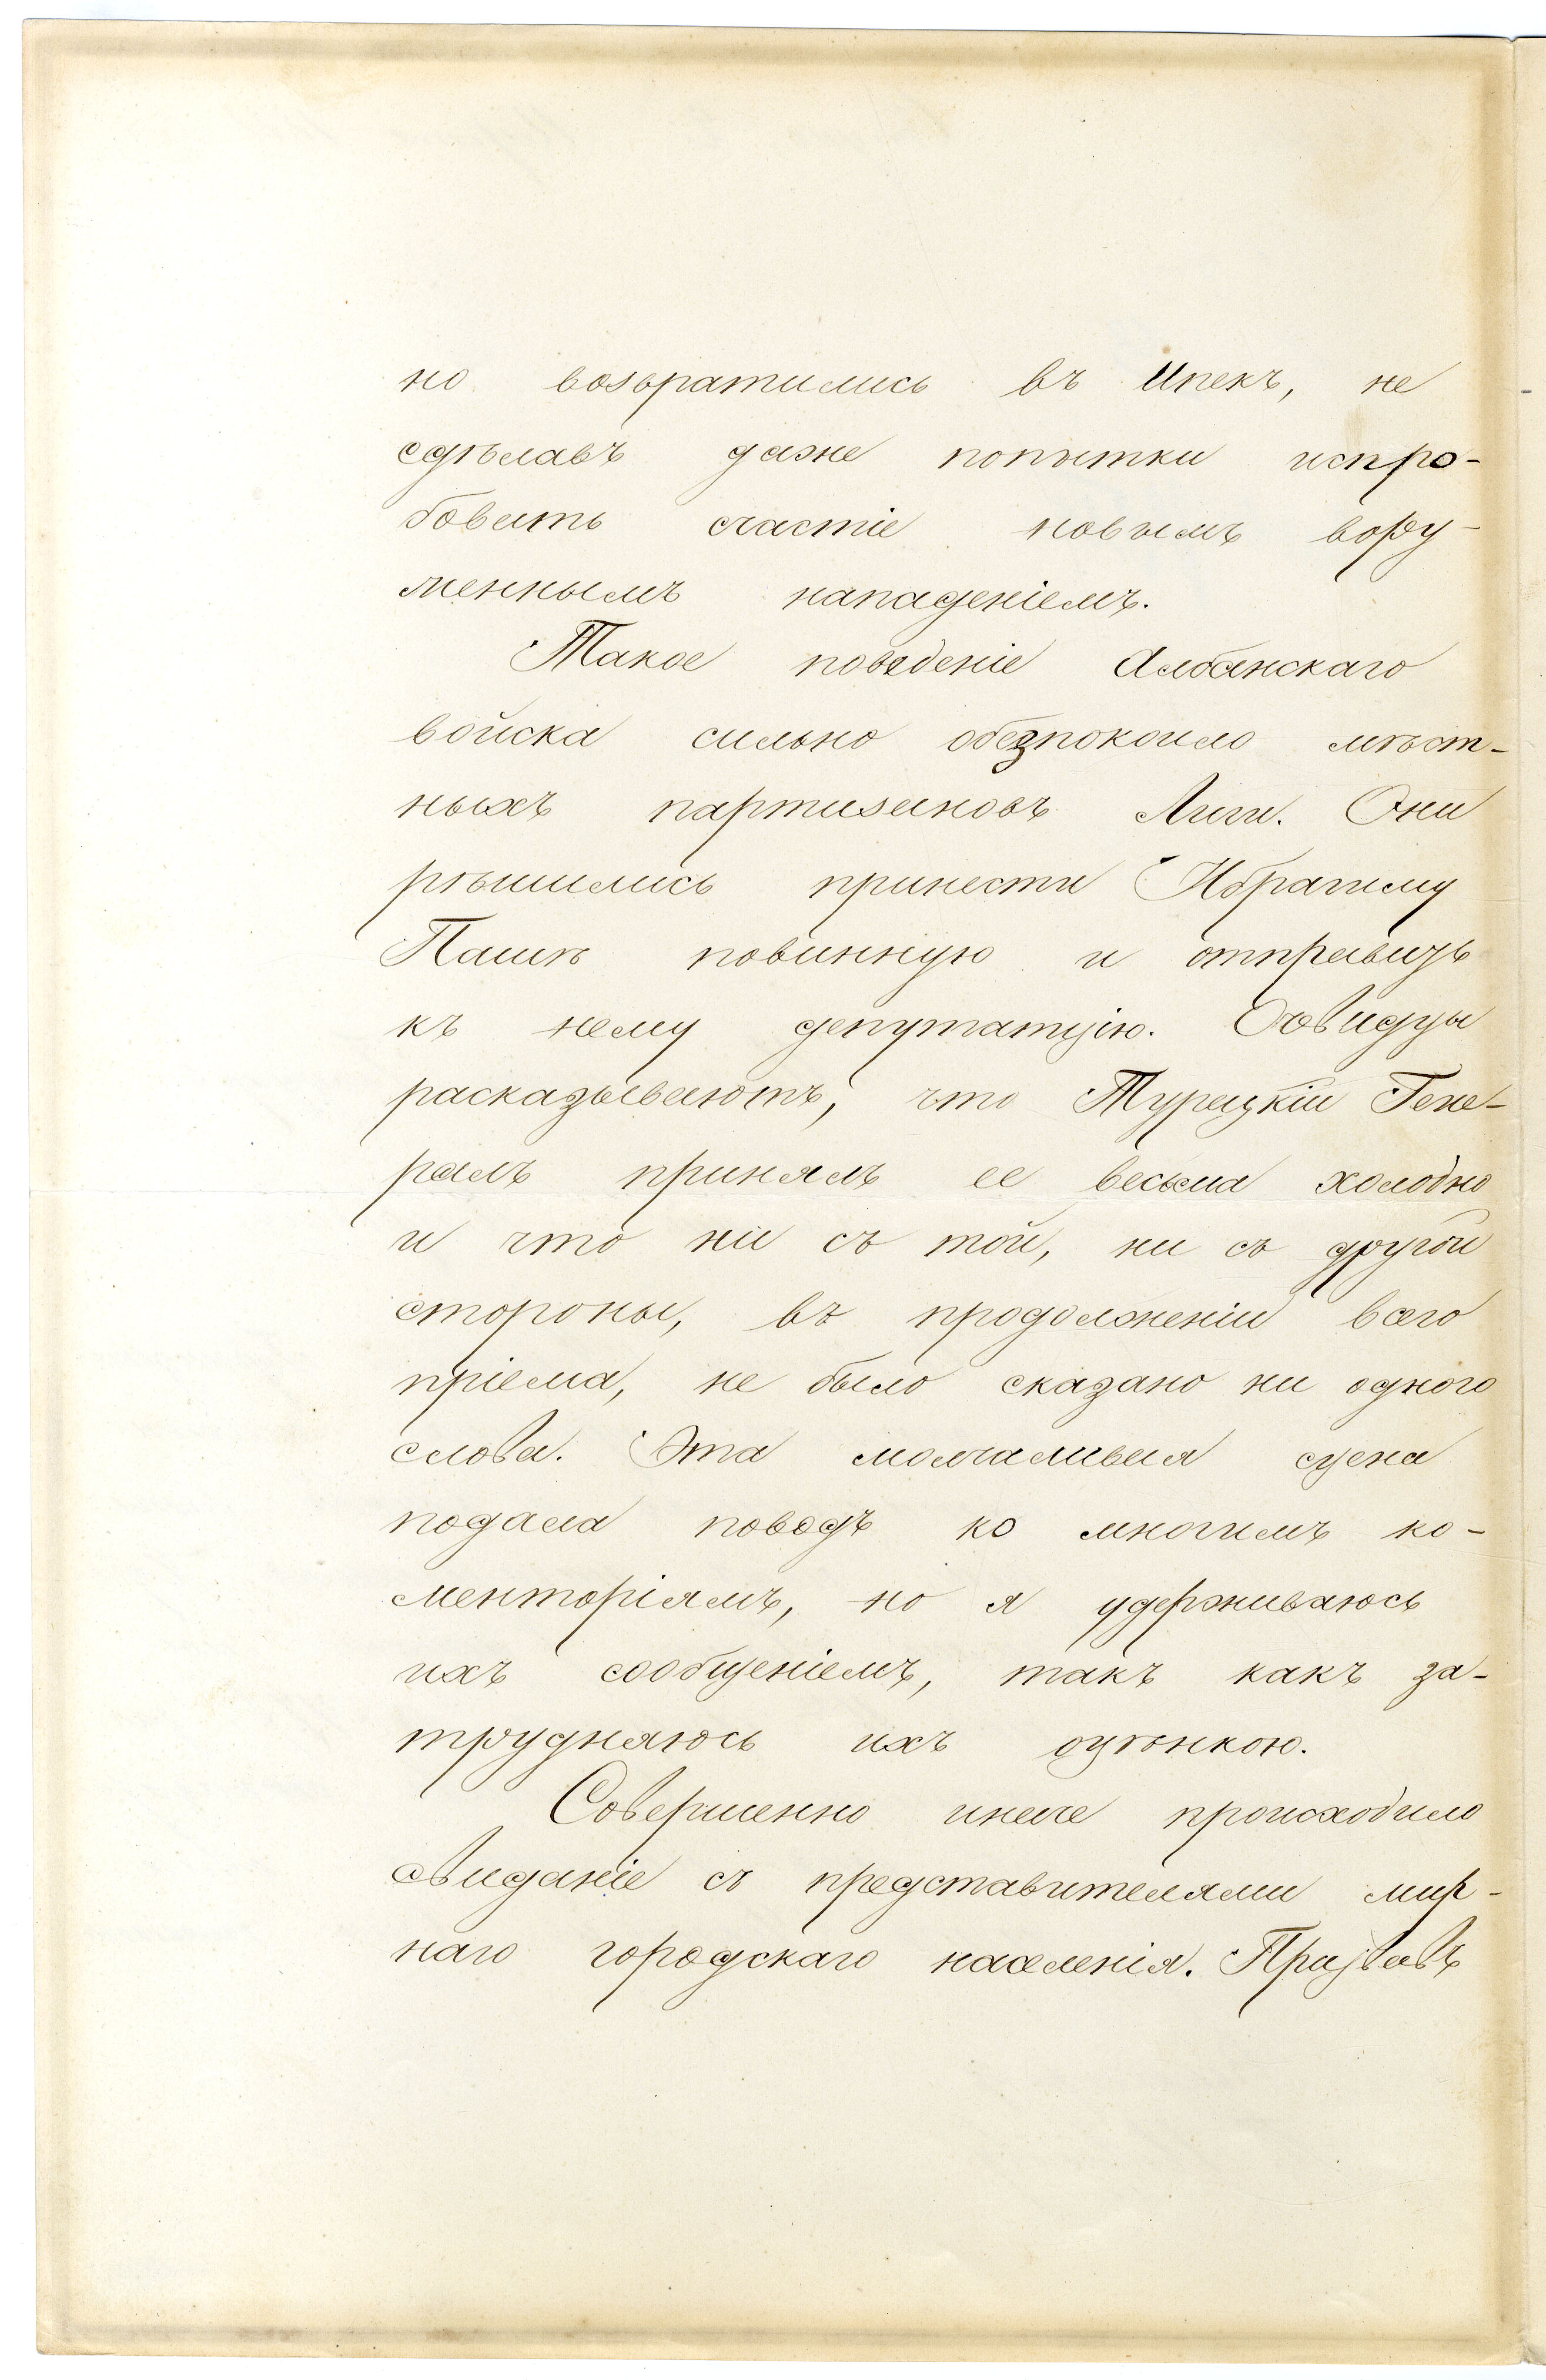 но возвратились въ Ипекъ, не
сдѣлавъ даже попытки испро-
бовать счастіе новымъ вору-
женнымъ нападеніемъ.
Такое поведеніе Албанскаго
войска сильно обезпокоило мѣст-
ныхъ партизановъ Лиги. Они
рѣшились принести Ибрагиму
Пашѣ повинную и отправить
къ нему депутатцію. Очевидцы
расказываютъ, что Турецкій Гене-
ралъ принялъ ее весьма холодно
и что ни съ той, ни съ другой
стороны, въ продолженіи всего
пріема, не было сказано ни одного
слова. Эта молчаливая сцена
подала поводъ ко многимъ ко-
менторіямъ, но я удерживаюсь
ихъ сообщеніемъ, такъ какъ за-
трудняюсь ихъ оцѣнкою.
Совершенно иначе происходило
свиданіе съ представителями мир-
наго городскаго населенія. Призвавъ